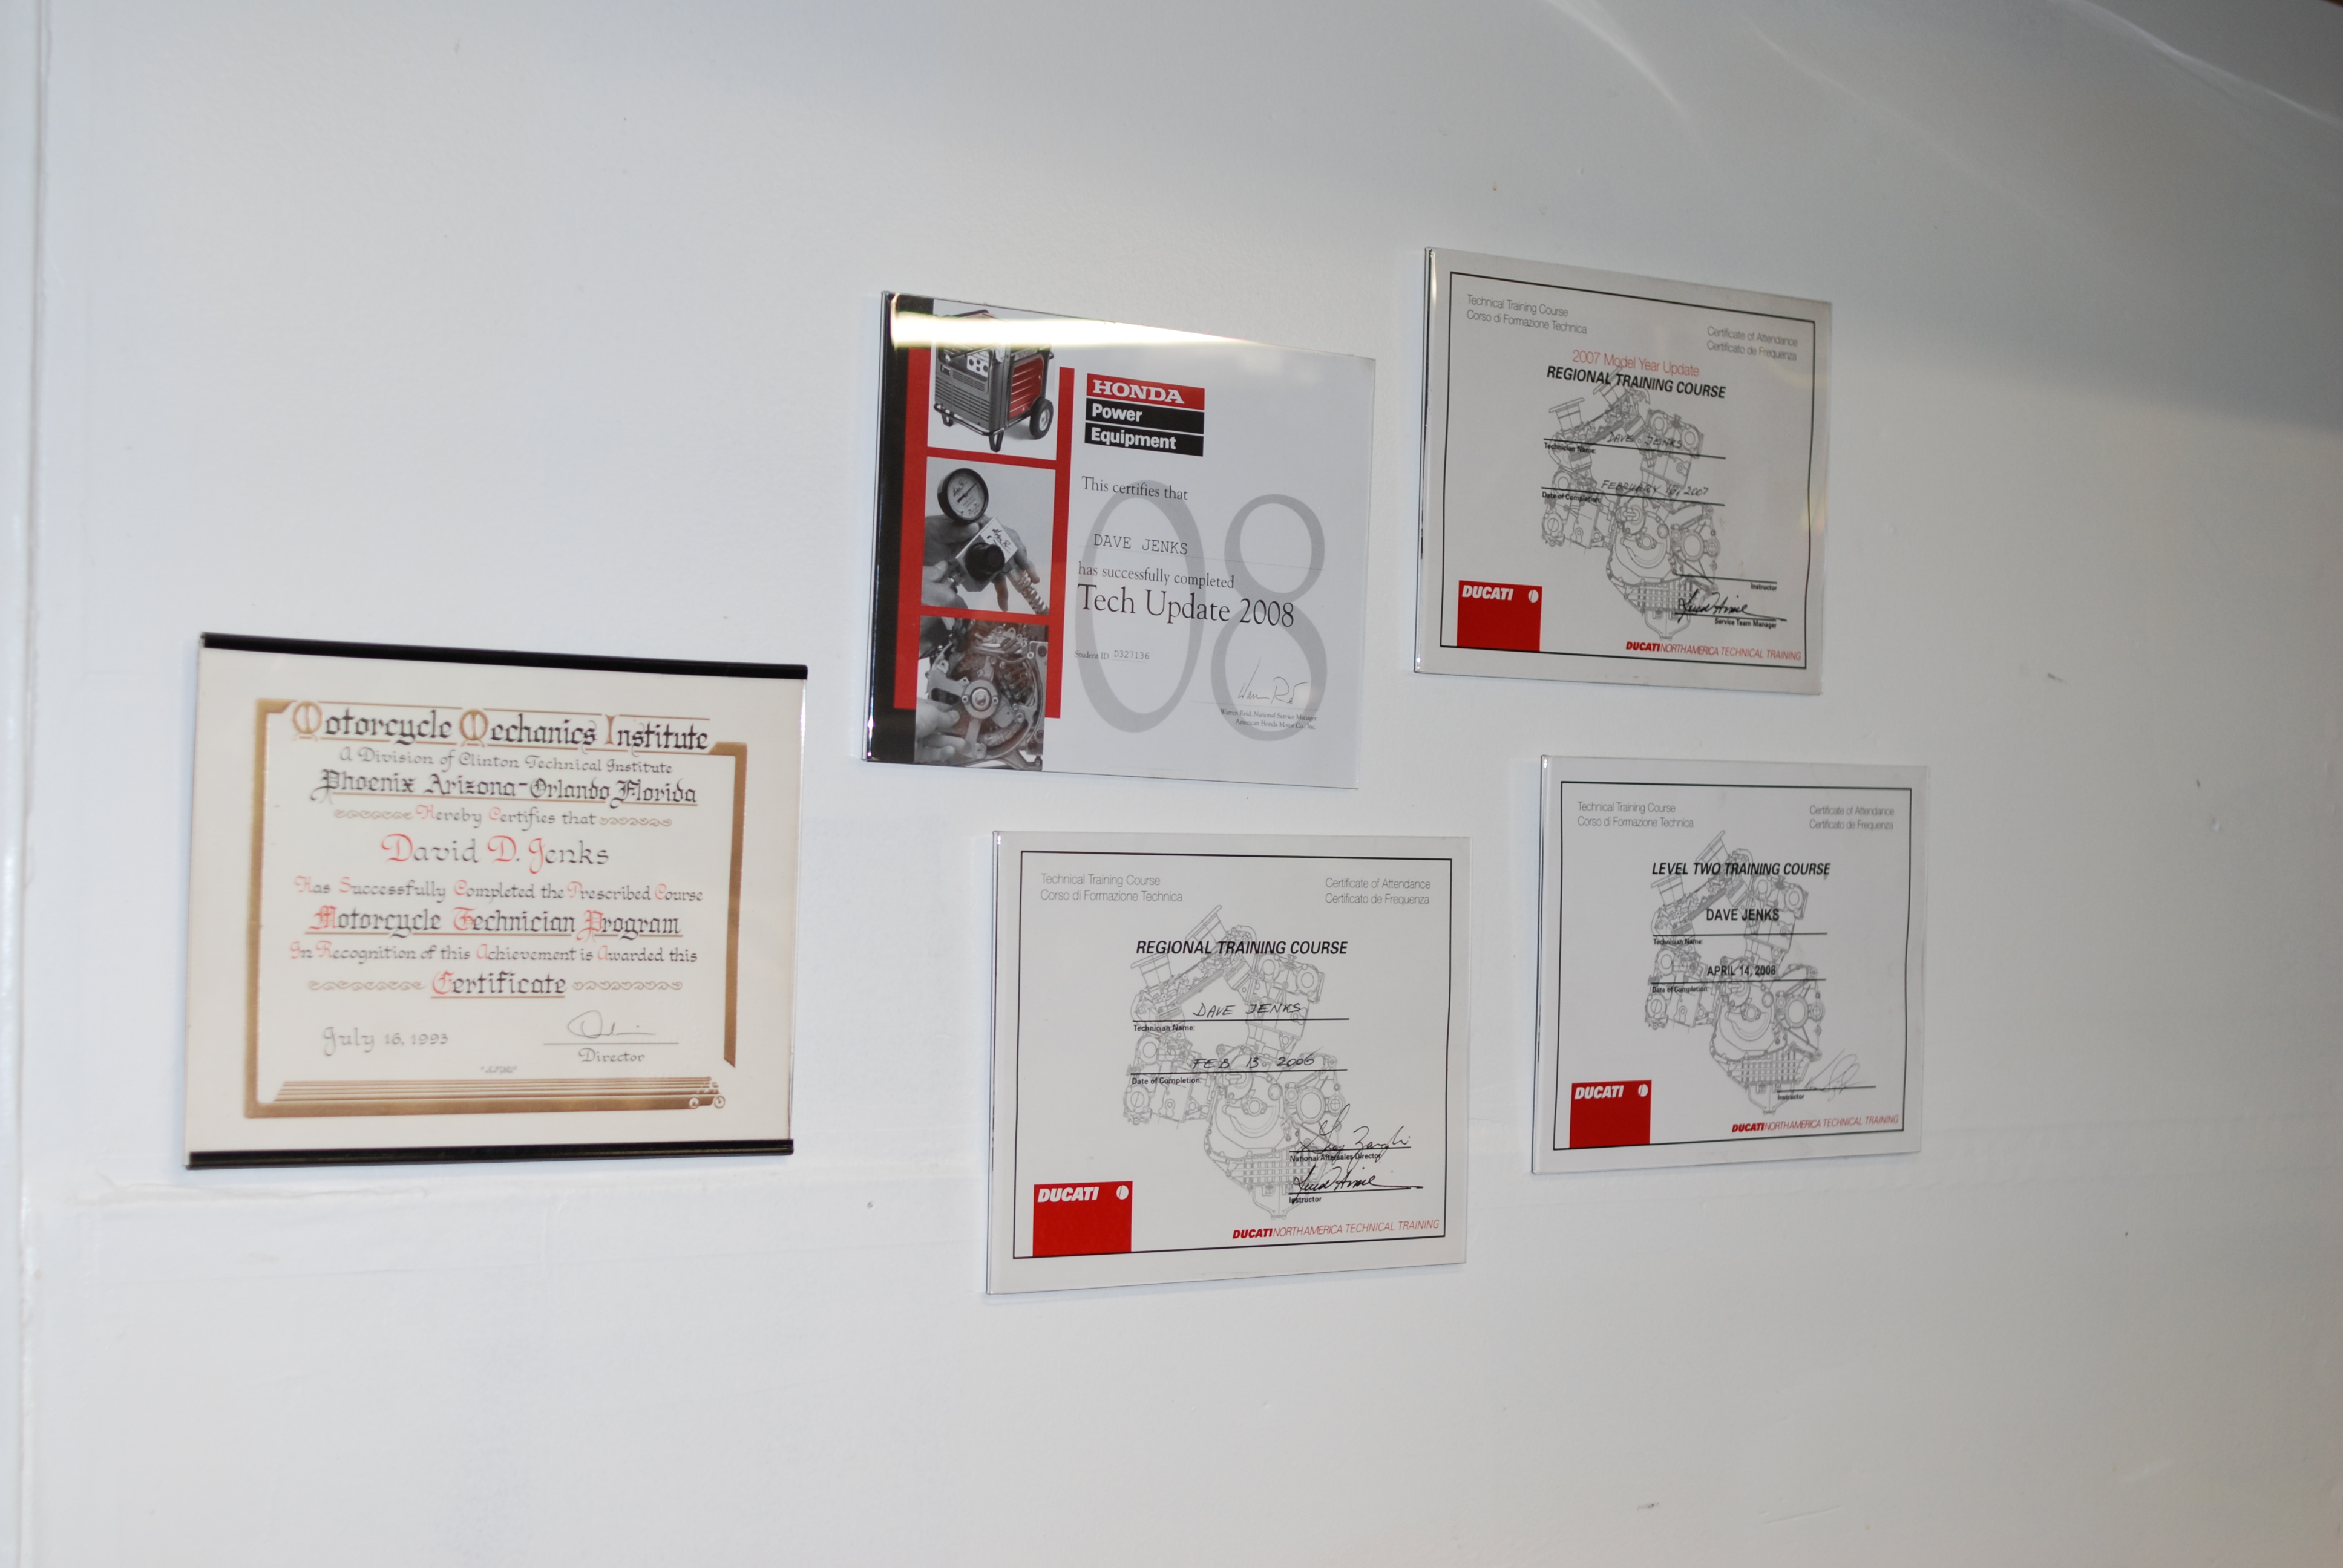 Motorcycle Mechanics Institute
A Division of Clinton Technical Institute
Phoenix Arizona-Orlando Florida
Hereby Certifies that
David D. Jenks
Has Successfully Completed the Prescribed Course
Motorcycle Technician Program
In Recognition of this Achievement is Awarded this
Certificate
July 16, 1993
Director
HONDA
Power
Equipment
08
This certifies that
DAVE JENKS
has successfully completed
Tech Update 2008
Student ID D327136
Warren Reid, National Service Manager
American Honda Motor Co., Inc.
Technical Training Course
Corso di Formazione Technica
Certificate of Attendance
Certificato de Frequenza
2007 Model Year Update
REGIONAL TRAINING COURSE
DAVE JENKS
Technician Name:
FEBRUARY 2007
Date of Completion:
Instructor
Service Team Manager
DUCATI
DUCATI NORTH AMERICA TECHNICAL TRAINING
Technical Training Course
Corso di Formazione Technica
Certificate of Attendance
Certificato de Frequenza
REGIONAL TRAINING COURSE
DAVE JENKS
Technician Name:
FEB 13 2006
Date of Completion:
National Aftersales Director
Instructor
DUCATI
DUCATI NORTH AMERICA TECHNICAL TRAINING
Technical Training Course
Corso di Formazione Technica
Certificate of Attendance
Certificato de Frequenza
LEVEL TWO TRAINING COURSE
DAVE JENKS
Technician Name:
APRIL 14, 2008
Date of Completion:
Instructor
DUCATI
DUCATI NORTH AMERICA TECHNICAL TRAINING